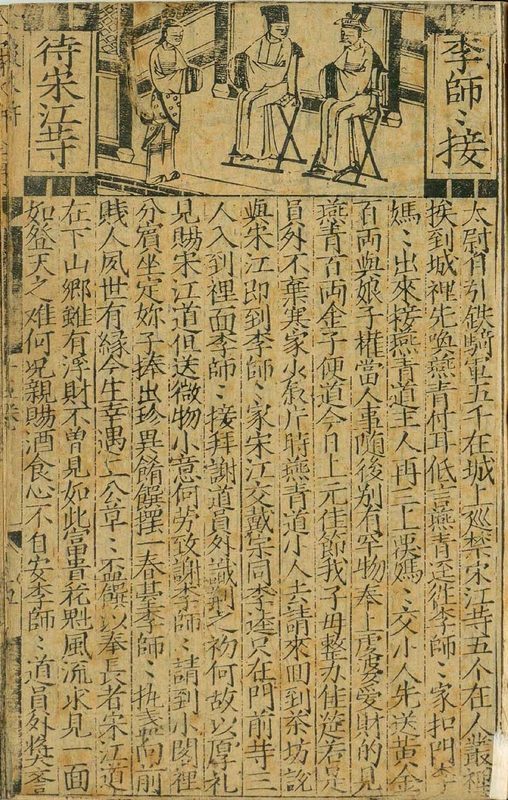 李師〻接
待宋江䓁
太尉自引鉄騎軍五千在城上巡禁宋江䓁五个在人叢裡
挨到城裡先喚燕青付耳低言燕青逕徃李師〻家扣門李
媽〻出來接燕青道主人再三上覆媽〻交小人先送黃金
百両與娘子權當人事隨後别有罕物奉上虔婆愛財的見
燕青百両金子便道今日上元佳節我子母整办佳筵若是
員外不棄寒家少叙片時燕青道小人去請來回到茶坊説
與宋江即到李師〻家宋江交戴宗同李逵只在門前䓁三
人入到裡面李師〻接拜謝道員外識荆之初何故以厚礼
見賜宋江道但送微物小意何労致謝李師〻請到小閣裡
分賓坐定妳子捧出珍異餚饌擺一春臺李師〻执盞向前
賤人夙世有縁今生幸遇二公草〻盃饌以奉長者宋江道
在下山鄉雖有浮財不曾見如此富貴花魁風流求見一面
如登天之难何况親賜酒食心不自安李師〻道員外奬誉